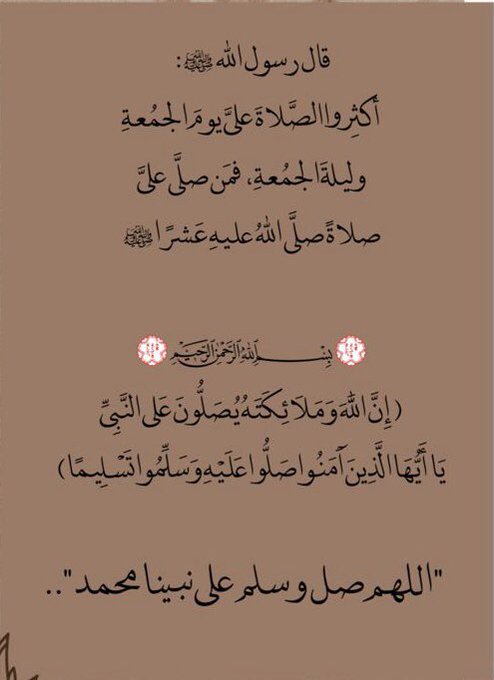 قال رسول الله ﷺ:
أكثِروا الصَّلاةَ عليَّ يومَ الجمُعةِ
وليلةَ الجمُعةِ، فمَن صلَّى عليَّ
صلاةً صلَّى اللهُ عليهِ عَشرًا ﷺ
بِسْمِ اللهِ الرَّحْمَٰنِ الرَّحِيمِ
(إِنَّ اللَّهَ وَمَلَائِكَتَهُ يُصَلُّونَ عَلَى النَّبِيِّ
يَا أَيُّهَا الَّذِينَ آمَنُوا صَلُّوا عَلَيْهِ وَسَلِّمُوا تَسْلِيمًا)
"اللهم صل وسلم على نبينا محمد"..